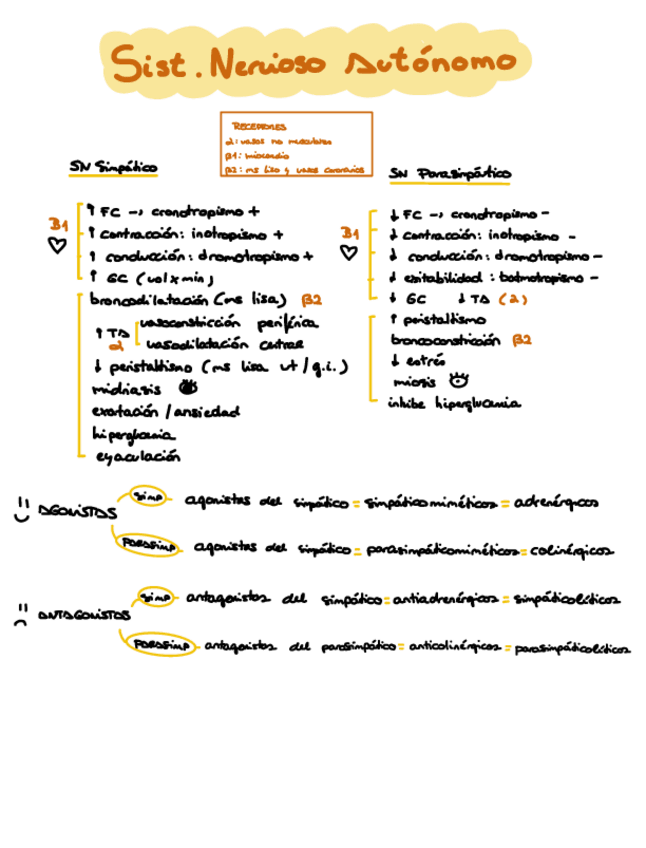 Sist. Nervioso Autónomo
RECEPTORES
α: vasos no musculares
β1: miocardio
β2: ms liso y vasos coronarios
SN Simpático
B1
↑ FC → cronotropismo +
↑ contracción: inotropismo +
↑ conducción: dromotropismo +
↑ GC (vol x min)
broncodilatación (ms lisa) β2
↑ TA
α
vasoconstricción periférica
vasodilatación central
↓ peristaltismo (ms lisa ut / g.i.)
midriasis
exortación / ansiedad
hiperglucemia
eyaculación
SN Parasimpático
B1
↓ FC → cronotropismo -
↓ contracción: inotropismo -
↓ conducción: dromotropismo -
↓ exitabilidad: batmotropismo -
↓ GC ↓ TA (2)
↑ peristaltismo
broncoconstricción β2
↓ estrés
miosis
inhibe hiperglucemia
AGONISTAS
SIMP agonistas del simpático = simpáticomiméticos = adrenérgicos
PARASIMP agonistas del simpático = parasimpáticomiméticos = colinérgicos
ANTAGONISTAS
SIMP antagonistas del simpático = antiadrenérgicos = simpáticolíticos
PARASIMP antagonistas del parasimpático = anticolinérgicos = parasimpáticolíticos